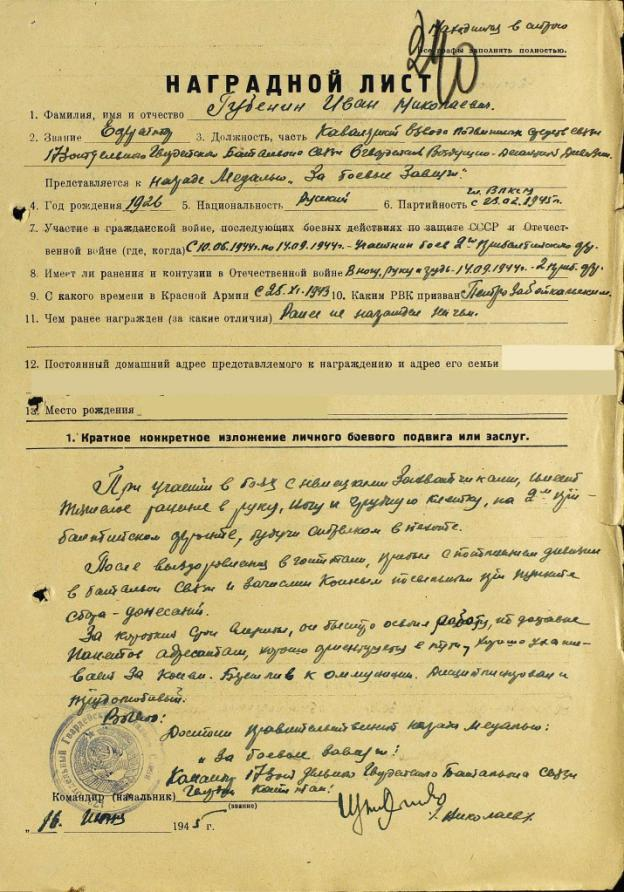 Находится в строю
Все графы заполнять полностью.
НАГРАДНОЙ ЛИСТ
1. Фамилия, имя и отчество Губенин Иван Николаевич.
2. Звание 3. Должность, часть подвижных средств связи
Батальона Связи Воздушно-Десантной
Представляется к Награде Медалью „За боевые Заслуги"
чл. ВЛКСМ
4. Год рождения 1926 5. Национальность Русский 6. Партийность с 23.02.1945г.
7. Участие в гражданской войне, последующих боевых действиях по защите СССР и Отечест-
венной войне (где, когда) С 10.06.1944г. по 14.09.1944г. - Участник боев 2ой Прибалтийского фр.
8. Имеет ли ранения и контузии в Отечественной войне В ногу, руку и грудь - 14.09.1944г. - 2 Приб. фр.
9. С какого времени в Красной Армии С 25.XI.1943 10. Каким РВК призван
11. Чем ранее награжден (за какие отличия) Ранее не награжден ничем.
12. Постоянный домашний адрес представляемого к награждению и адрес его семьи
13. Место рождения
1. Краткое конкретное изложение личного боевого подвига или заслуг.
При участии в боях с немецкими Захватчиками, имеет
тяжелое ранение в руку, ногу и грудную клетку, на 2ом При-
балтийском фронте, будучи стрелком в пехоте.
После выздоровления в госпитали, прибыл с дивизии
в батальон Связи и зачислен Конным при пункте
сбора-донесений.
За короткий срок он быстро освоил работу, по доставке
Пакетов адресатам, хорошо ориентируется в пути, хорошо ухажи-
вает За Конем. Дисциплинирован и
трудолюбивый.
Вывод:
Достоин правительственной награды медалью:
„За боевые заслуги!
Командир 17 Отдельного Гвардейского Батальона Связи
Гвардии Капитан:
Командир (начальник)
(звание)
/Николаев/
„16. Июня 1945 г.